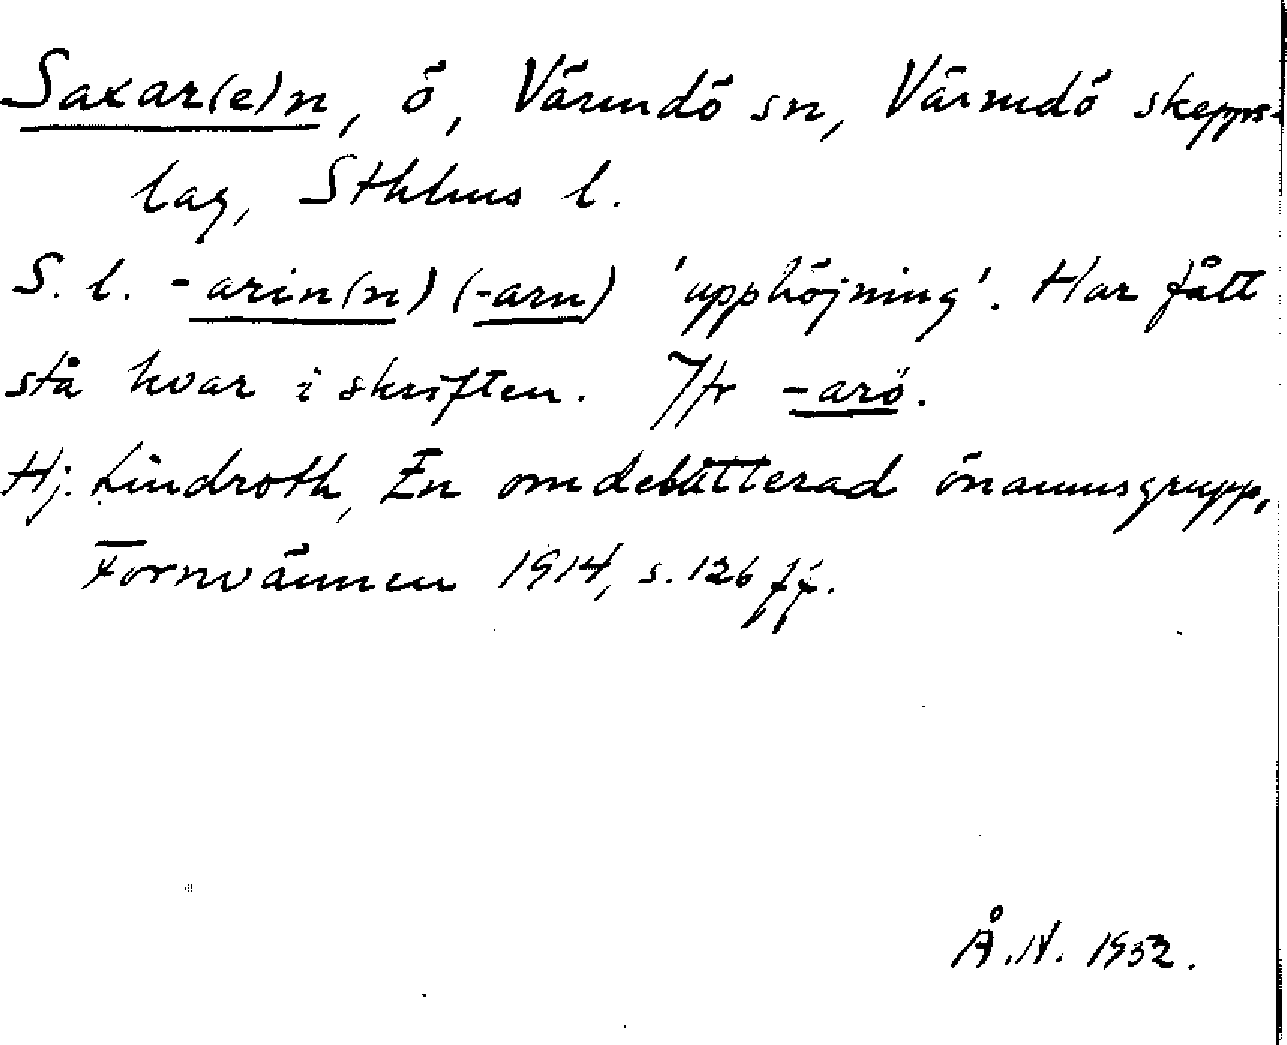 Saxar(e)n, ö, Värmdö sn, Värmdö skepps-
lag, Sthlms l.
S. l. -arin(n) (-arn) 'upphöjning'. Har fått
stå kvar i skriften. Jfr -arö.
Hj. Lindroth, En omdebatterad önamnsgrupp,
Fornvännen 1914, s. 126 ff.
Å.N. 1932.